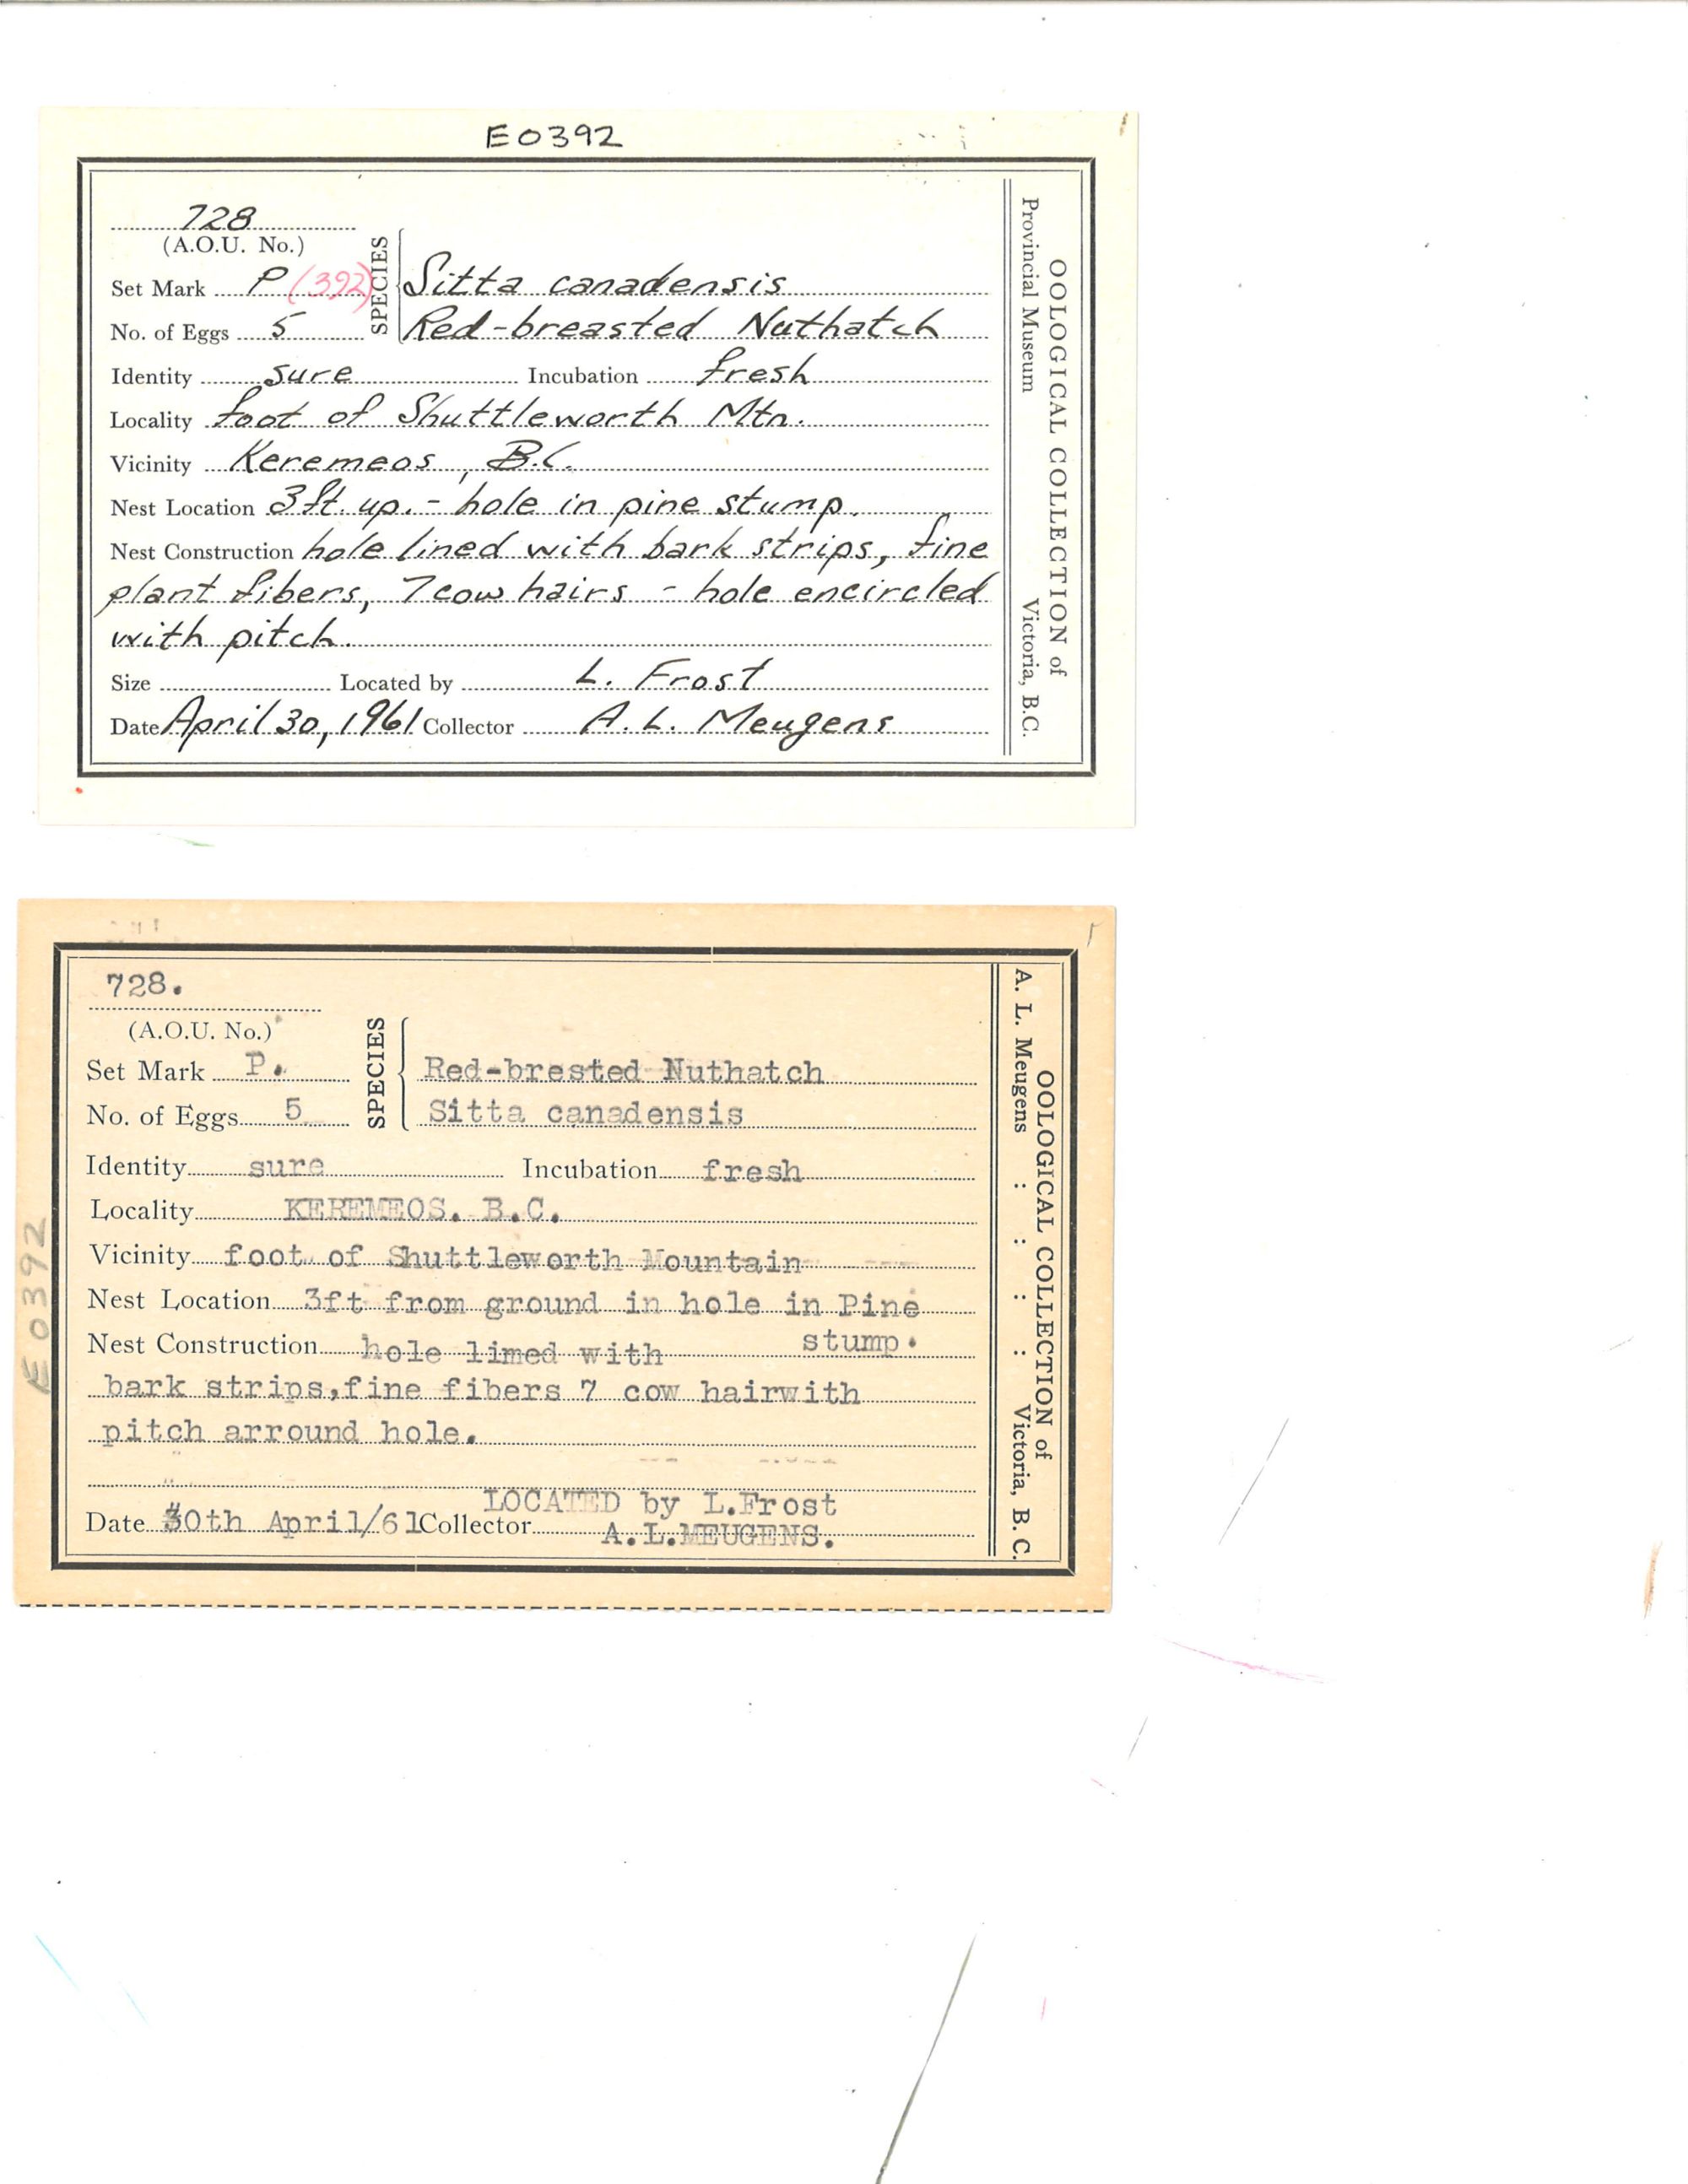 E0392
728
(A.O.U. No.)
Set Mark P (392)
No. of Eggs 5
SPECIES
Sitta canadensis
Red-breasted Nuthatch
Identity sure Incubation fresh
Locality foot of Shuttleworth Mtn.
Vicinity Keremeos, B.C.
Nest Location 3ft. up. - hole in pine stump.
Nest Construction hole lined with bark strips, fine
plant fibers, 7 cow hairs - hole encircled
with pitch.
Size Located by L. Frost
Date April 30, 1961 Collector A. L. Meugens
OOLOGICAL COLLECTION of
Provincial Museum Victoria, B.C.
E0392
728.
(A.O.U. No.)
Set Mark P.
No. of Eggs 5
SPECIES
Red-brested Nuthatch
Sitta canadensis
Identity sure Incubation fresh
Locality KEREMEOS. B.C.
Vicinity foot of Shuttleworth Mountain
Nest Location 3ft from ground in hole in Pine
stump.
Nest Construction hole limed with
bark strips,fine fibers 7 cow hairwith
pitch arround hole.
LOCATED by L.Frost
Date 30th April/61 Collector A.L.MEUGENS.
OOLOGICAL COLLECTION of
A. L. Meugens : : : : Victoria, B. C.